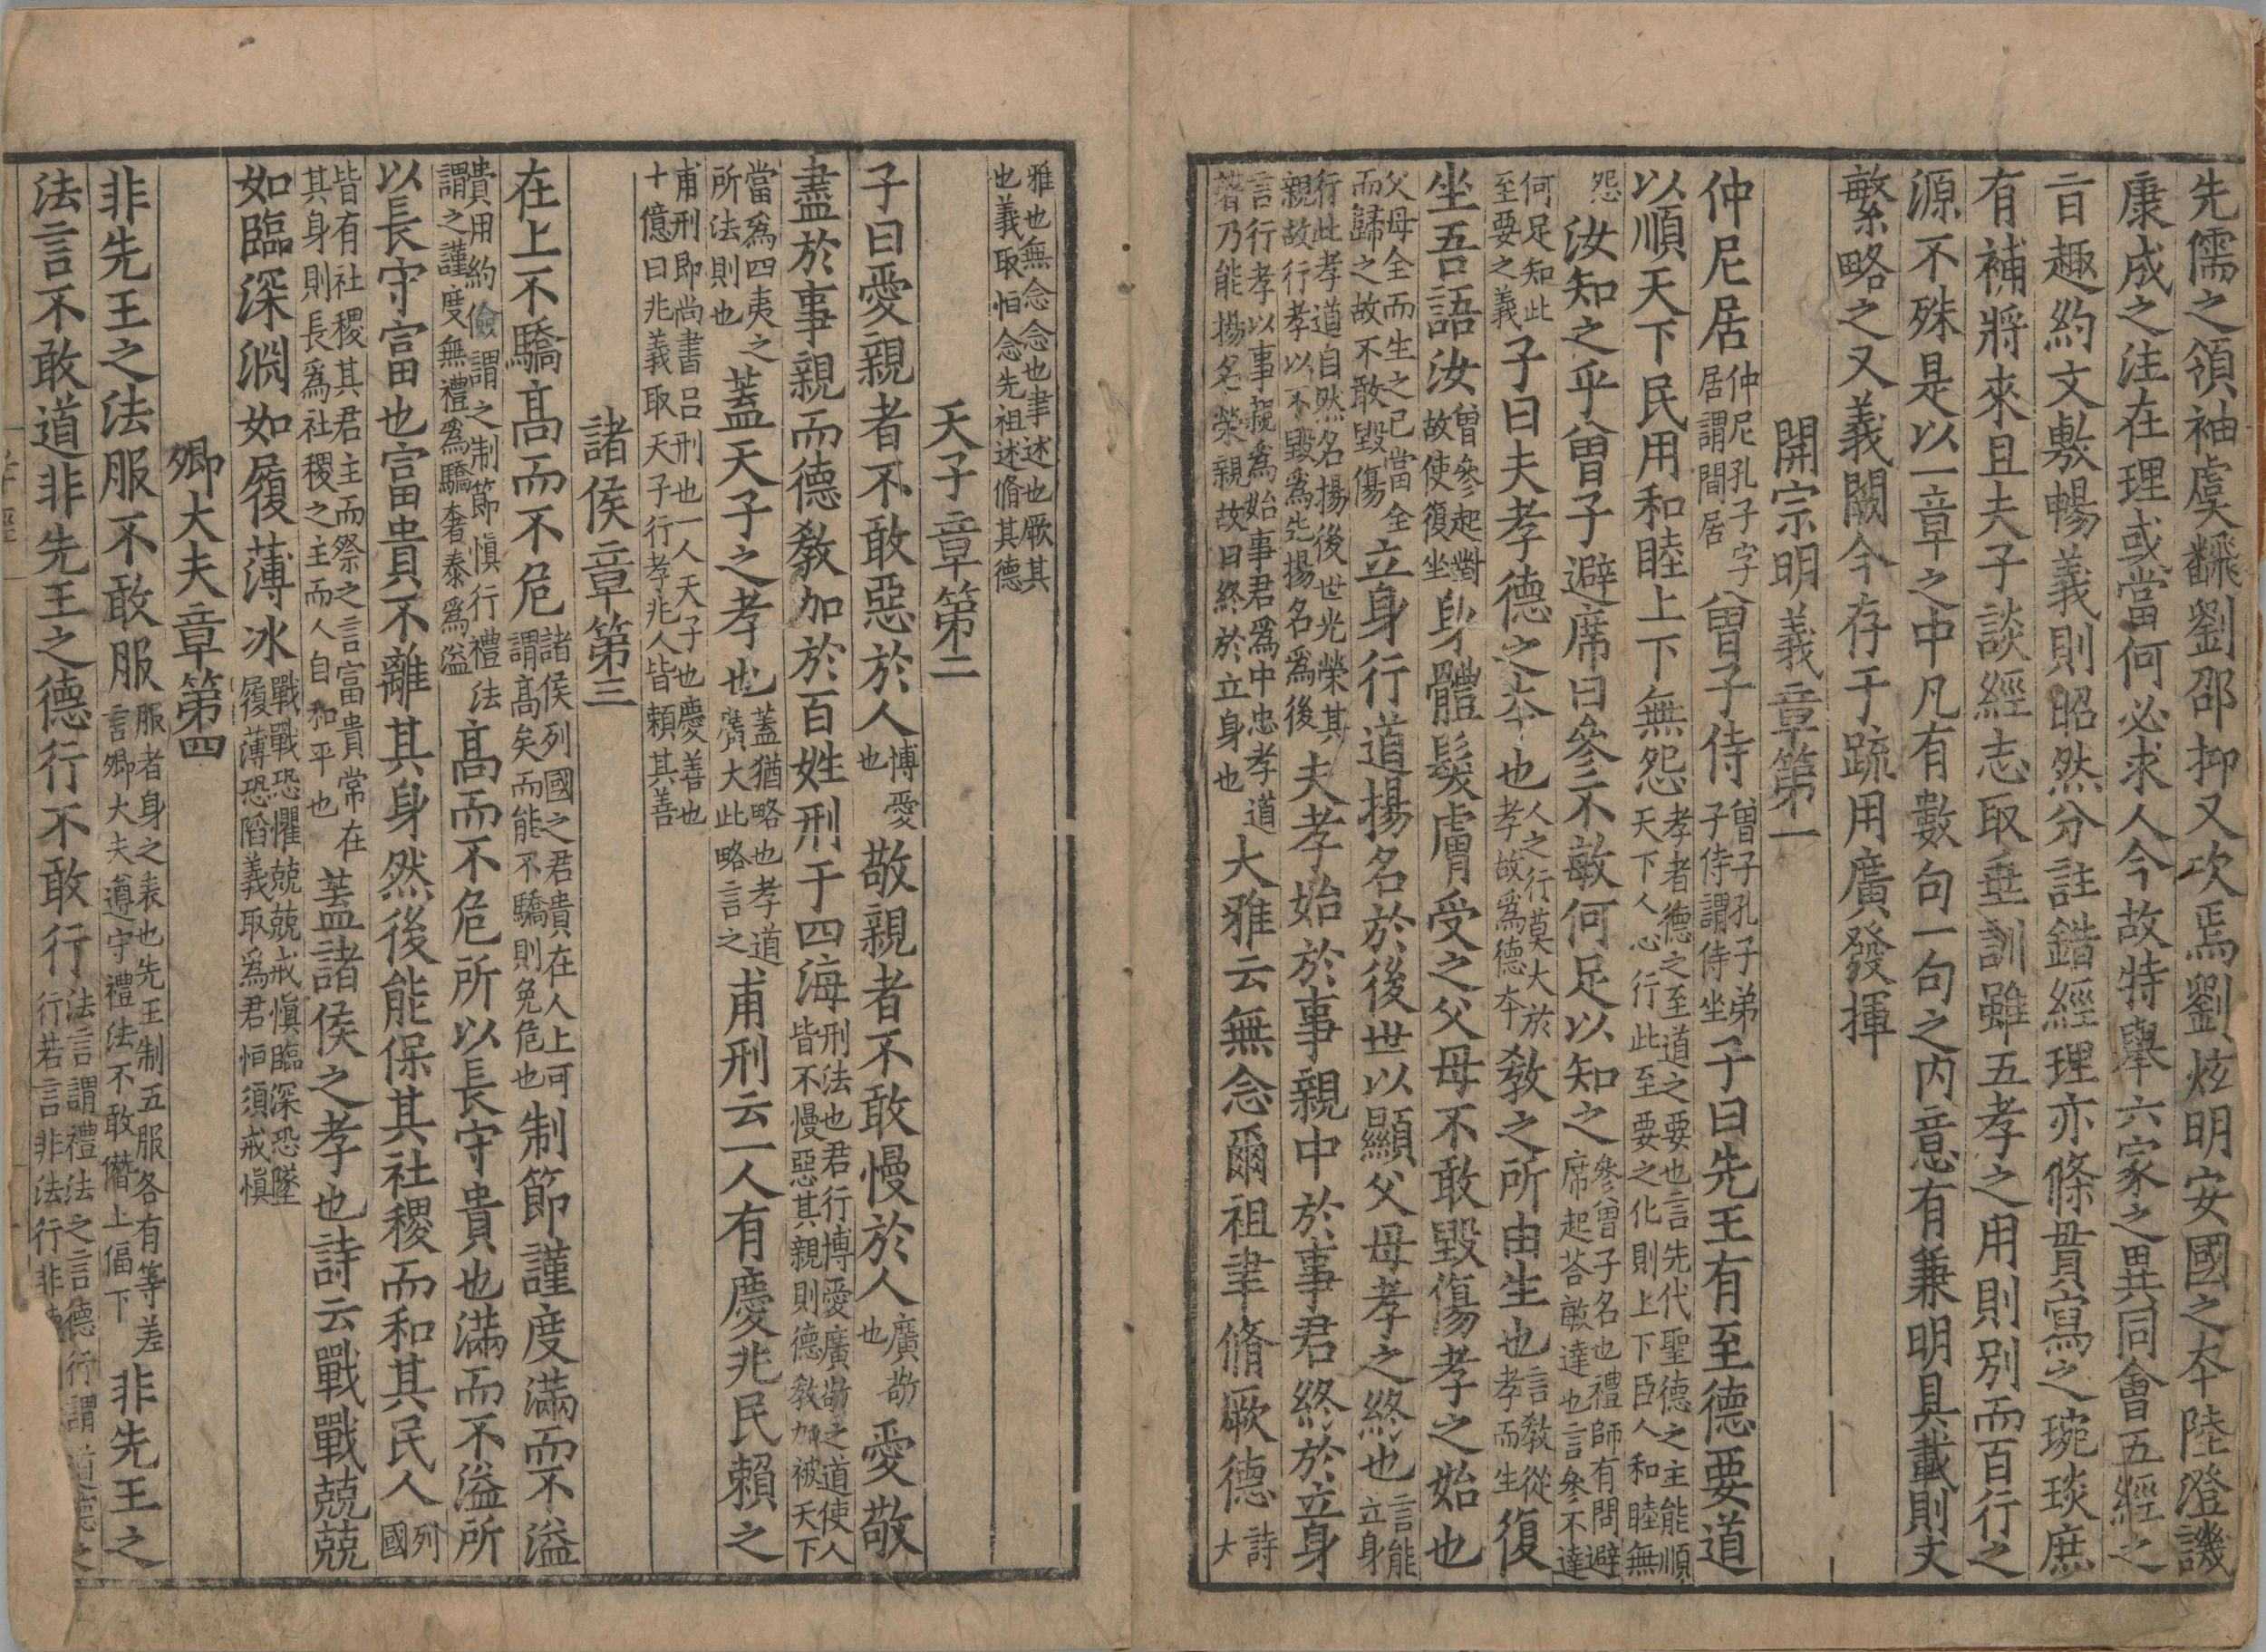 先儒之領袖虞翻劉邵抑又次焉劉炫明安國之本陸澄譏
康成之注在理或當何必求人今故特舉六家之異同會五經之
旨趣約文敷暢義則昭然分註錯經理亦條貫寫之琬琰庶
有補將來且夫子談經志取垂訓雖五孝之用則別而百行之
源不殊是以一章之中凡有數句一句之内意有兼明具載則文
繁略之又義闕今存于疏用廣發揮
開宗明義章第一
仲尼居仲尼孔子字居謂間居曾子侍曾子孔子弟子侍謂侍坐子曰先王有至德要道
以順天下民用和睦上下無怨孝者德之至道之要也言先代聖德之主能順天下人心行此至要之化則上下臣人和睦無
怨汝知之乎曾子避席曰參不敏何足以知之參曾子名也禮師有問避席起荅敏達也言參不達
何足知此至要之義子曰夫孝德之本也人之行莫大於孝故爲德本教之所由生也言教從孝而生復
坐吾語汝曾參起對故使復坐身體髮膚受之父母不敢毀傷孝之始也
父母全而生之已當全而歸之故不敢毀傷立身行道揚名於後世以顯父母孝之終也言能立身
行此孝道自然名揚後世光榮其親故行孝以不毀爲先揚名爲後夫孝始於事親中於事君終於立身
言行孝以事親爲始事君爲中忠孝道著乃能揚名榮親故曰終於立身也大雅云無念爾祖聿脩厥德詩大
雅也無念念也聿述也厥其也義取恒念先祖述脩其德
天子章第二
子曰愛親者不敢惡於人博愛也敬親者不敢慢於人廣敬也愛敬
盡於事親而德教加於百姓刑于四海刑法也君行博愛廣敬之道使人皆不慢惡其親則德教加被天下
當爲四夷之所法則也蓋天子之孝也蓋猶略也孝道廣大此略言之甫刑云一人有慶兆民賴之
甫刑即尚書呂刑也一人天子也慶善也十億曰兆義取天子行孝兆人皆賴其善
諸侯章第三
在上不驕高而不危諸侯列國之君貴在人上可謂高矣而能不驕則免危也制節謹度滿而不溢
費用約儉謂之制節慎行禮法謂之謹度無禮爲驕奢泰爲溢高而不危所以長守貴也滿而不溢所
以長守富也富貴不離其身然後能保其社稷而和其民人列國
皆有社稷其君主而祭之言富貴常在其身則長爲社稷之主而人自和平也蓋諸侯之孝也詩云戰戰兢兢
如臨深淵如履薄冰戰戰恐懼兢兢戒慎臨深恐墜履薄恐陷義取爲君恒須戒慎
卿大夫章第四
非先王之法服不敢服服者身之表也先王制五服各有等差言卿大夫遵守禮法不敢僭上偪下非先王之
法言不敢道非先王之德行不敢行法言謂禮法之言德行謂道德之行若言非法行非